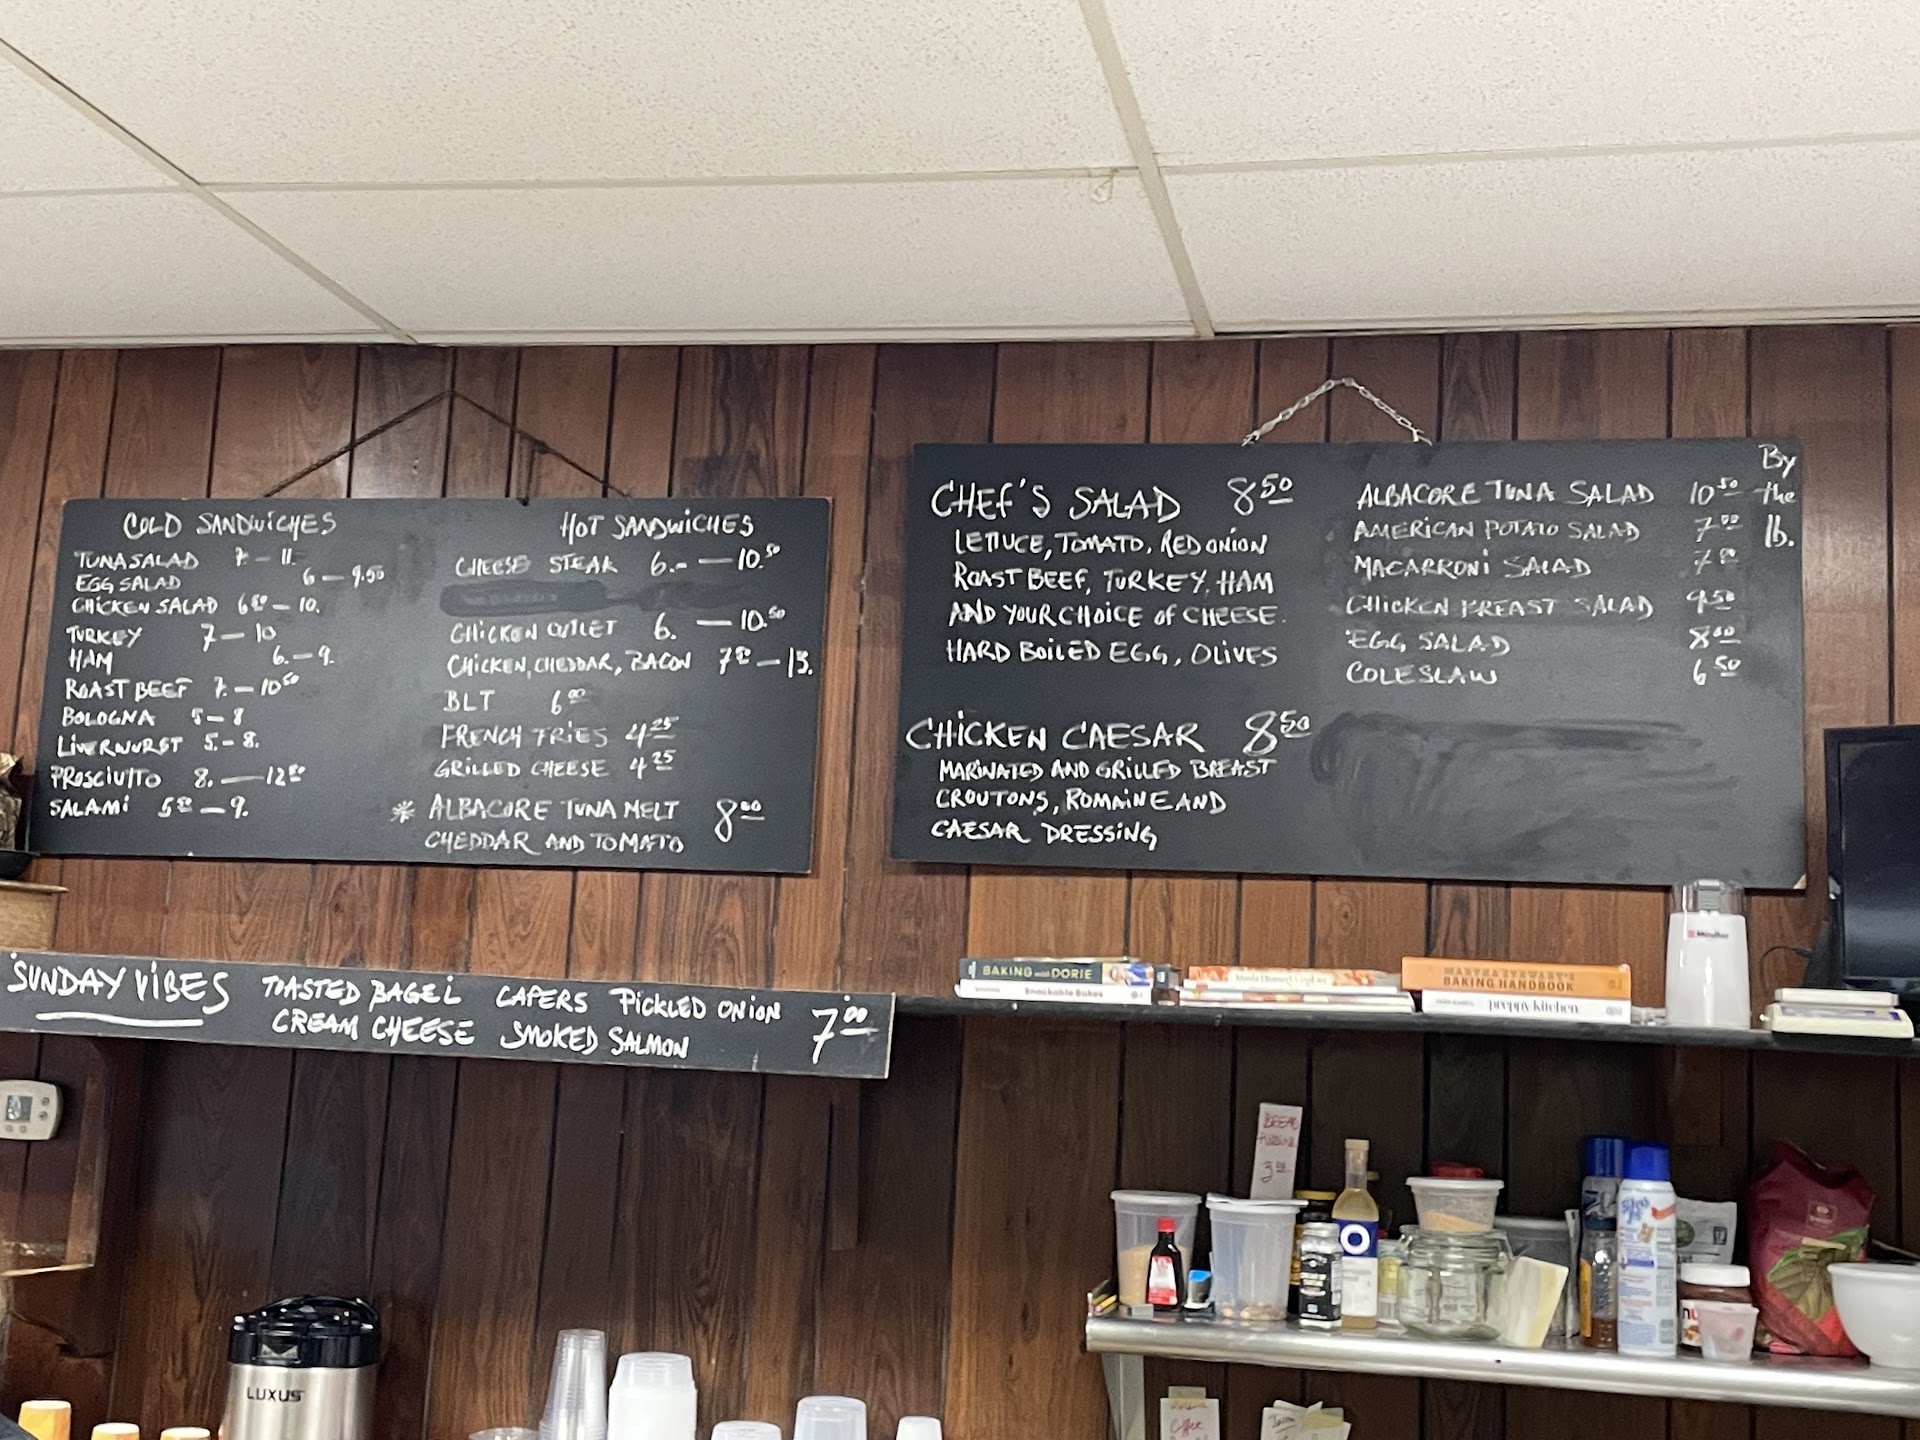 COLD SANDWICHES
TUNA SALAD 7 - 11.
EGG SALAD 6 - 9.50
CHICKEN SALAD 6 50 - 10.
TURKEY 7 - 10
HAM 6. - 9.
ROAST BEEF 7. - 10 50
BOLOGNA 5 - 8
LIVERWURST 5. - 8.
PROSCIUTTO 8. - 12 50
SALAMI 5 50 - 9.
HOT SANDWICHES
CHEESE STEAK 6. - 10.50
CHICKEN CUTLET 6. - 10.50
CHICKEN, CHEDDAR, BACON 7 50 - 13.
BLT 6 00
FRENCH FRIES 4 25
GRILLED CHEESE 4 25
* ALBACORE TUNA MELT 8 00
CHEDDAR AND TOMATO
CHEF'S SALAD 8 50
LETTUCE, TOMATO, RED ONION
ROAST BEEF, TURKEY, HAM
AND YOUR CHOICE OF CHEESE.
HARD BOILED EGG, OLIVES
CHICKEN CAESAR 8 50
MARINATED AND GRILLED BREAST
CROUTONS, ROMAINE AND
CAESAR DRESSING
By the lb.
ALBACORE TUNA SALAD 10 50
AMERICAN POTATO SALAD 7 00
MACARRONI SALAD 7
CHICKEN BREAST SALAD 9 50
EGG SALAD 8 00
COLESLAW 6 50
SUNDAY VIBES
TOASTED BAGEL CAPERS PICKLED ONION
CREAM CHEESE SMOKED SALMON
7 00
BAKING with DORIE
Snackable Bakes
MARTHA STEWART'S
BAKING HANDBOOK
preppy kitchen
LUXUS
Coffee